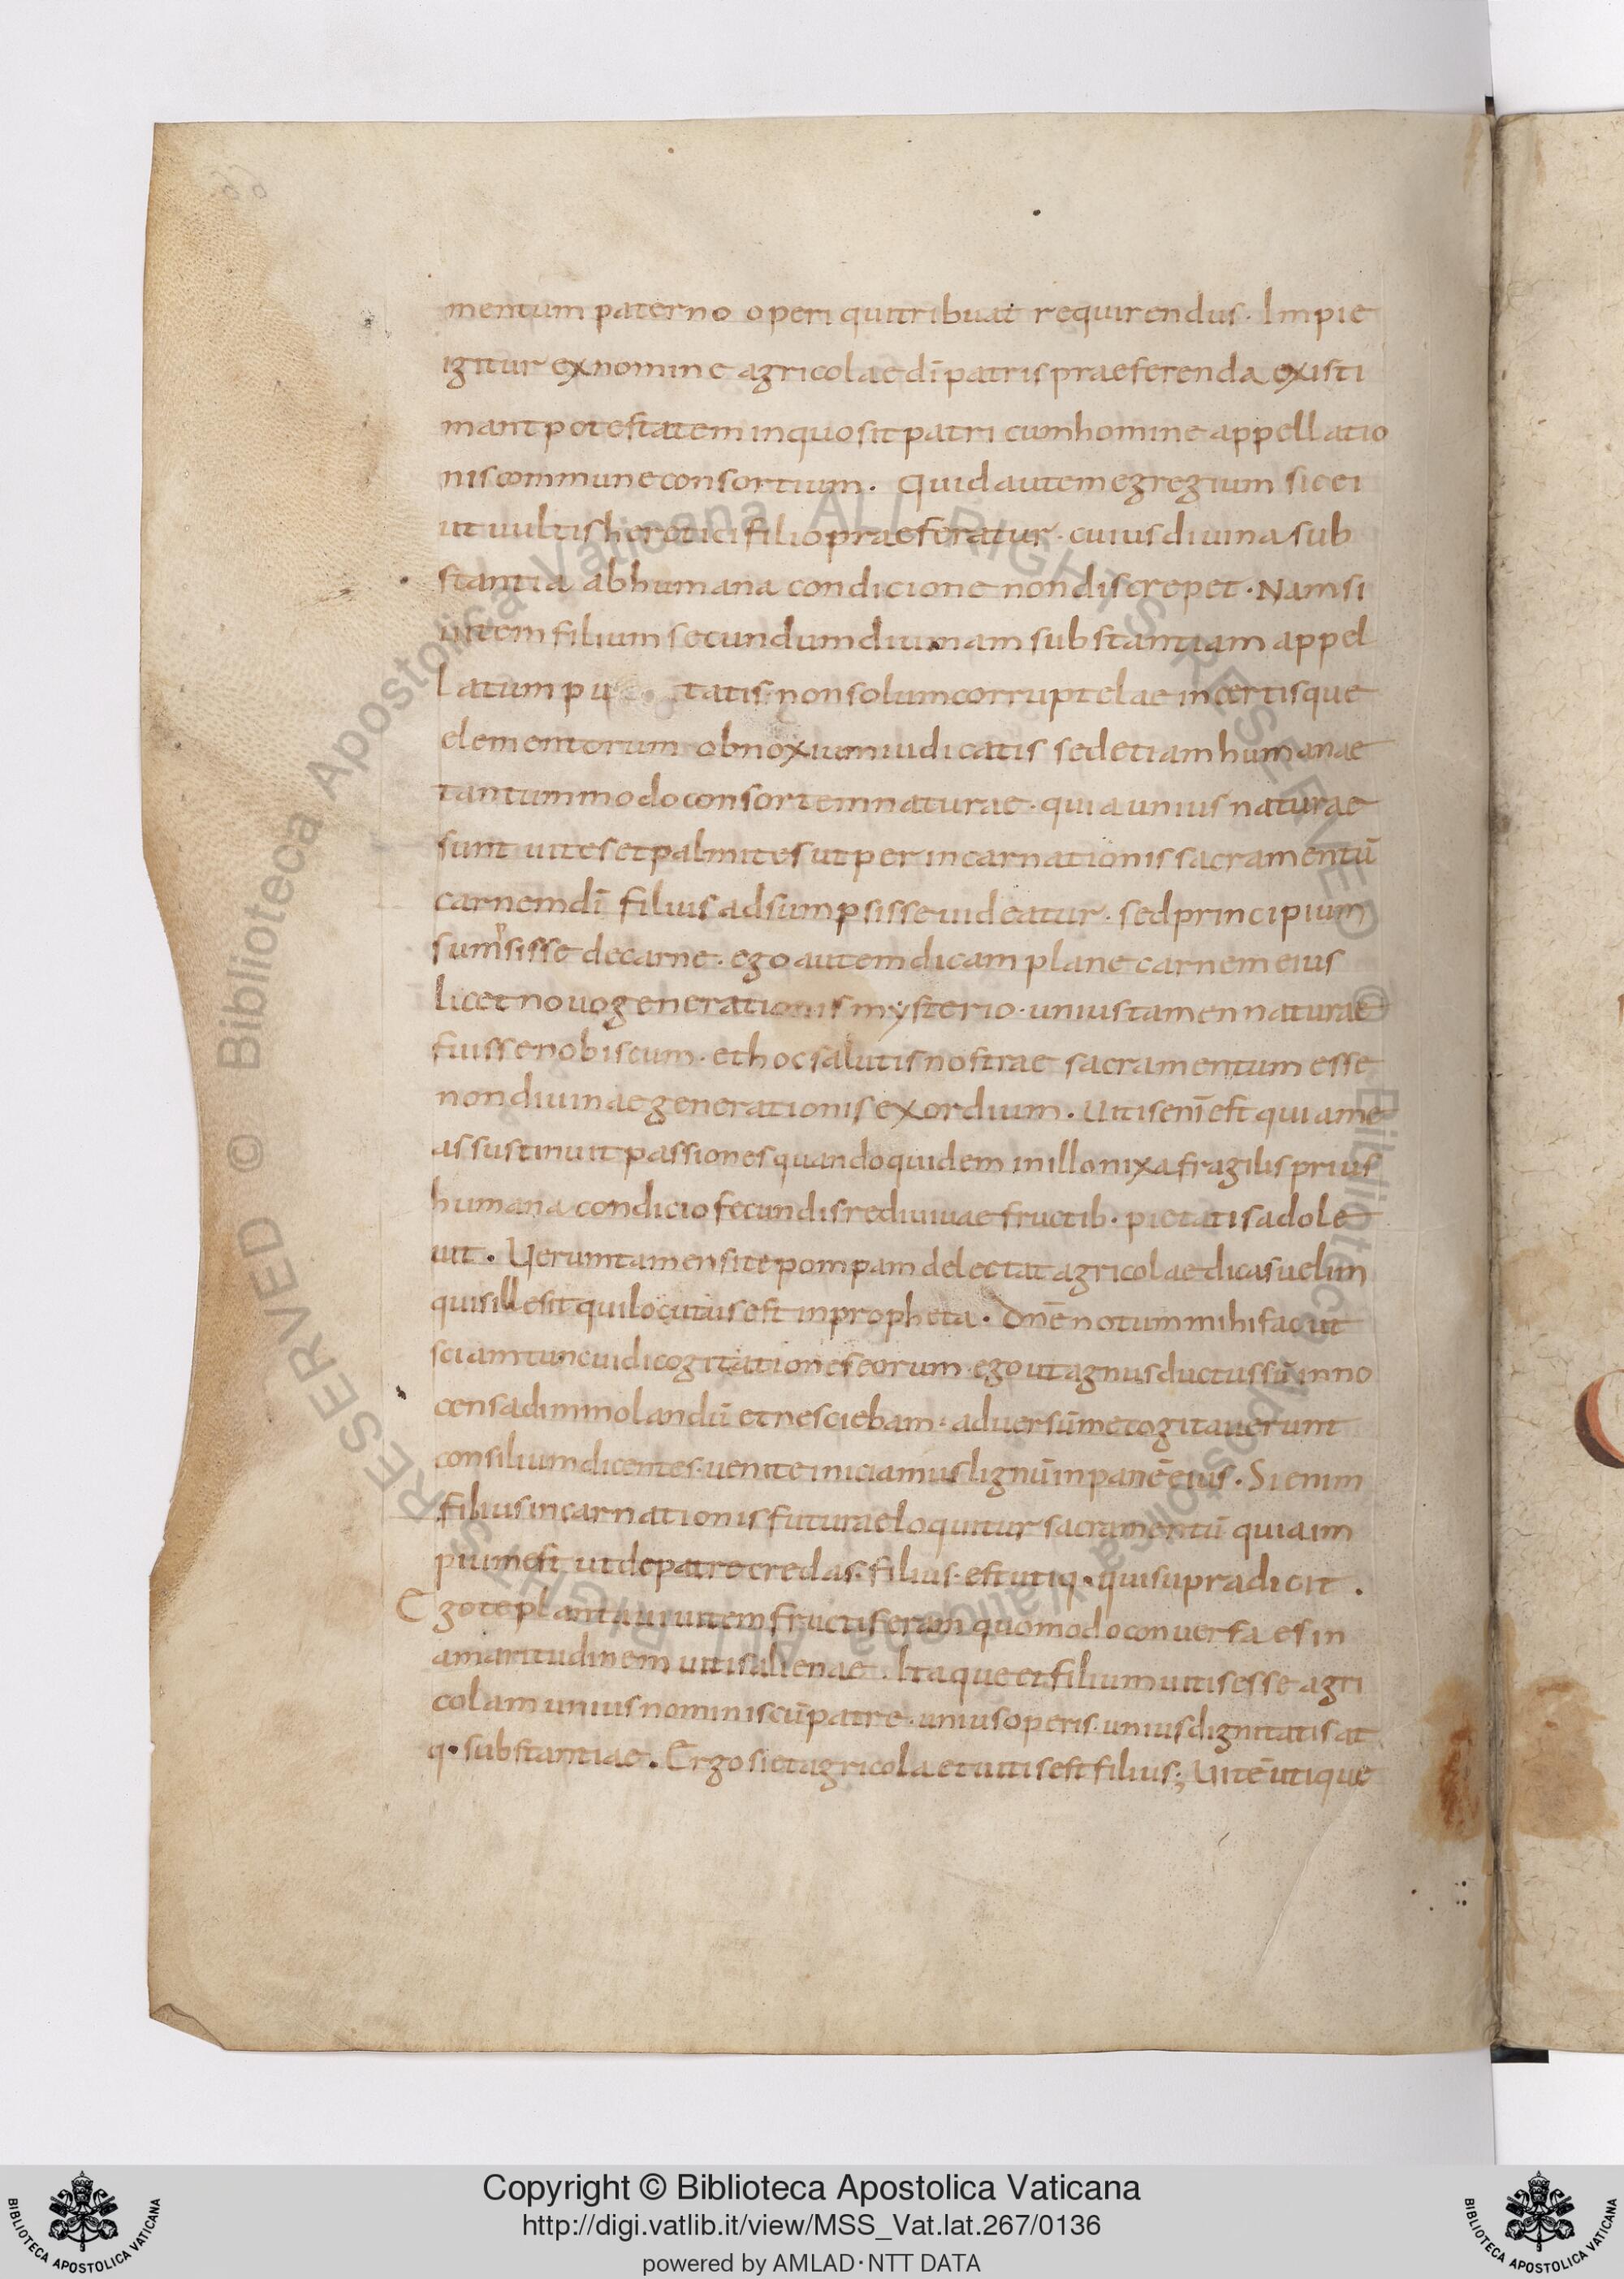 mentum paterno operi qui tribuat requirendus. Impie
igitur ex nomine agricolae dī patris praeferenda existi
mant potestatem in quo sit patri cum homine appellatio
nis commune consortium. Quid autem egregium si ei
ut uultis heretici filio praeferatur. cuius diuina sub
stantia ab humana condicione non discrepet. Nam si
uitem filium secundum diuinam substantiam appel
latum tatis. non solum corruptelae incertisque
elementorum obnoxium iudicatis sed etiam humanae
tantummodo consortem naturae. quia unius naturae
sunt uites et palmites ut per incarnationis sacramentū
carnem dī filius adsumpsisse uideatur. sed principium
sumpsisse de carne. ego autem dicam plane carnem eius
licet nouo generationis mysterio. unius tamen naturae
fuisse nobiscum. et hoc salutis nostrae sacramentum esse
non diuinae generationis exordium. Uitis enī est qui ame
as sustinuit passiones quandoquidem in illo nixa fragilis prius
humana condicio fecundis rediuiuae fructib. pietatis adole
uit. Ueruntamen si te pompam delectat agricolae dicas uelim
quis ille sit qui locutus est in propheta. Dnē notum mihi fac ut
sciam tunc uidi cogitationes eorum. ego ut agnus ductus sū inno
cens ad immolandū et nesciebam. aduersū me cogitauerunt
consilium dicentes. uenite iniciamus lignū in panē eius. Si enim
filius incarnationis futurae loquitur sacramentū quia im
pium est ut de patre credas. filius. est utiq. qui supra dicit.
Ego te plantaui uitem fructiferam quomodo conuersa es in
amaritudinem uitis alienae. Itaque et filium uitis esse agri
colam unius nominis cū patre. unius operis. unius dignitatis at
q. substantiae. Ergo si et agricola et uitis est filius; Uitē utique
Copyright © Biblioteca Apostolica Vaticana
http://digi.vatlib.it/view/MSS_Vat.lat.267/0136
powered by AMLAD·NTT DATA
BIBLIOTECA APOSTOLICA VATICANA
BIBLIOTECA APOSTOLICA VATICANA